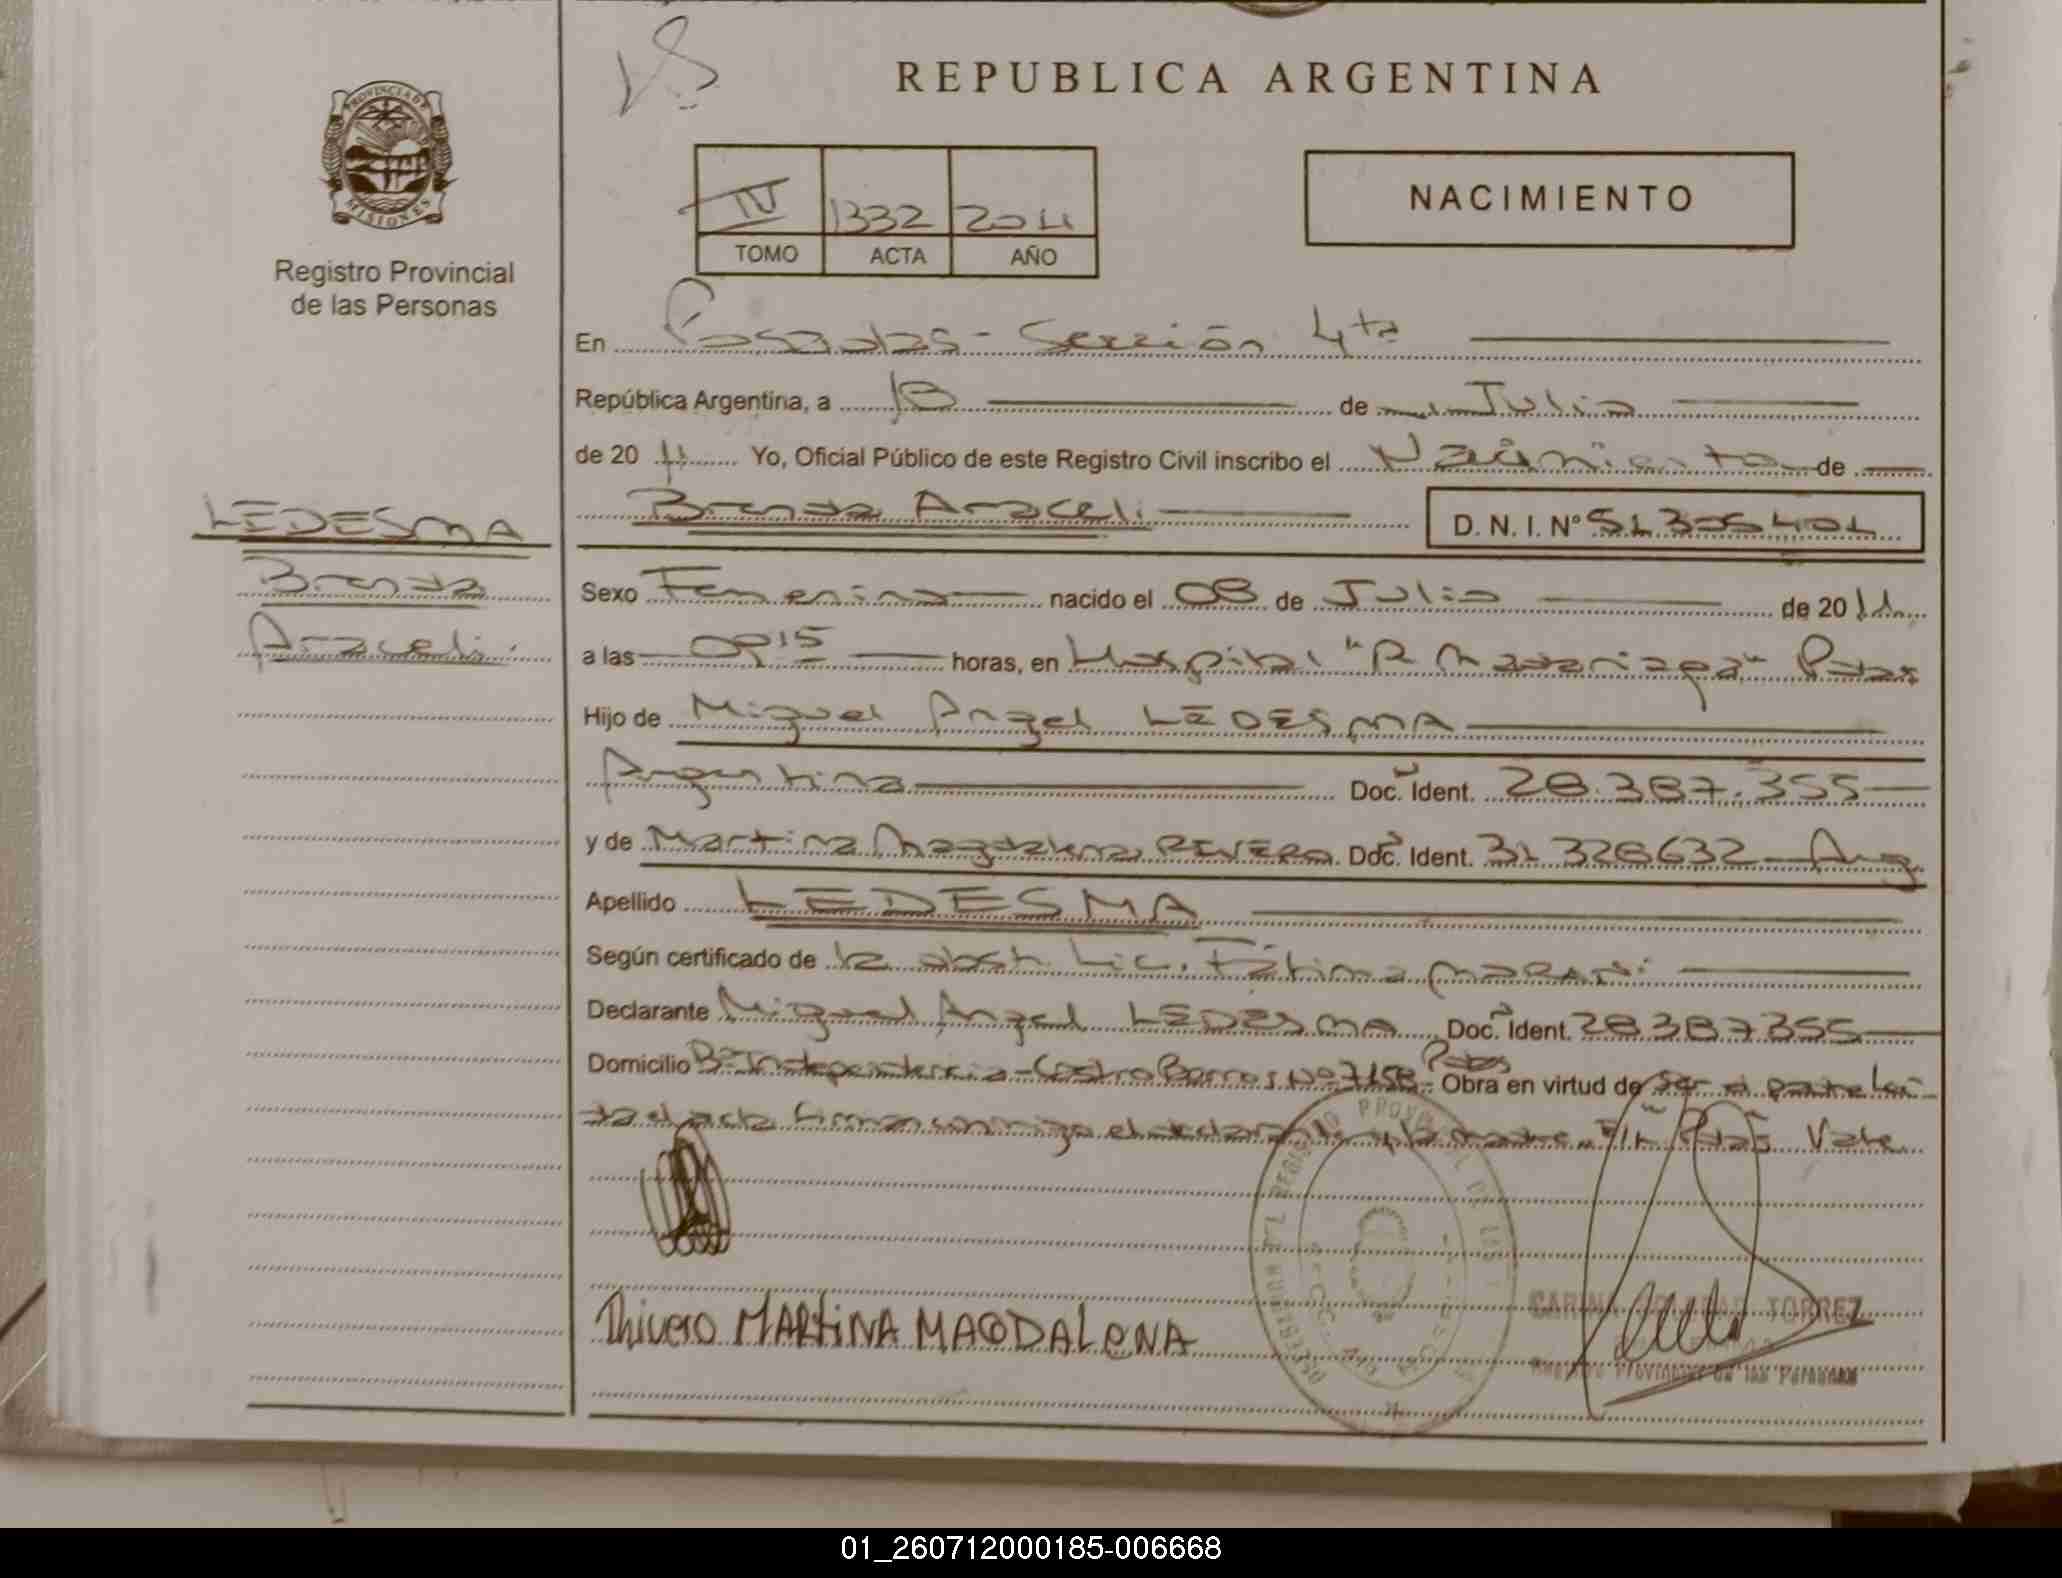 REPUBLICA ARGENTINA
PROVINCIA DE
MISIONES
Registro Provincial
de las Personas
IV 1332 2011
TOMO ACTA AÑO
NACIMIENTO
En Posadas - Sección 4ta
República Argentina, a 18 de Julio
de 20 11 Yo, Oficial Público de este Registro Civil inscribo el Nacimiento de
Brenda Araceli D. N. I. Nº 51305401
LEDESMA
Brenda
Araceli
Sexo Femenino nacido el 08 de Julio de 20 11
a las 09 15 horas, en Hospital "R Madariaga" Pdas
Hijo de Miguel Angel LEDESMA
Argentina Doc. Ident. 28.387.355
y de Martina Magdalena RIVERO Doc. Ident. 31326632 Arg
Apellido LEDESMA
Según certificado de la obst. Lic. Fátima
Declarante Miguel Angel LEDESMA Doc. Ident. 28387355
Domicilio Bº Independencia - Castro Barros Nº 7158 Pdas Obra en virtud de ser el padre Leí
da el acta firma conmigo el declarante y la madre E/L Pdas Vale
Rivero MARTINA MAGDALENA
TORREZ
Registro Provincial de las Personas
01_260712000185-006668